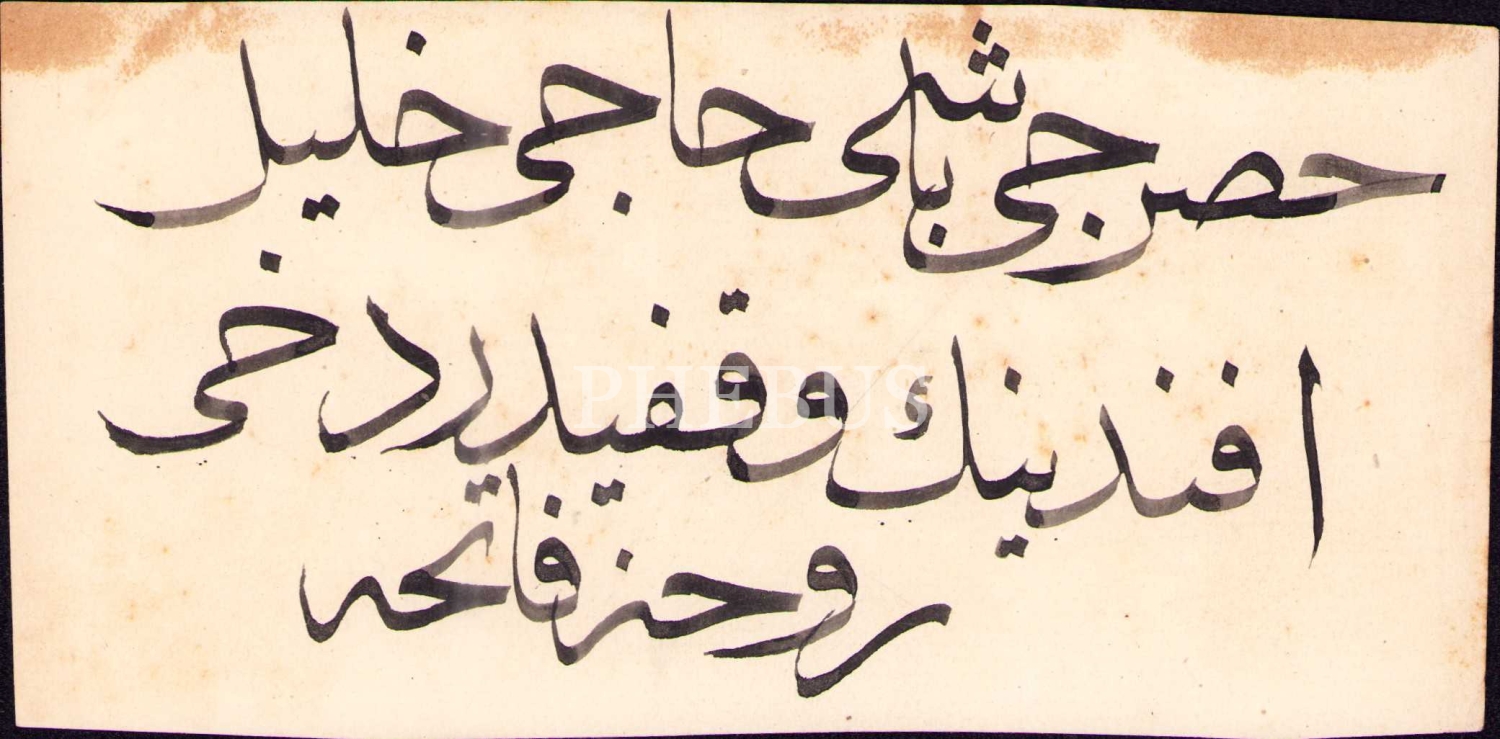 حصرجی باشی حاجی خلیل
افندینك وقفیدر دخی
روحنه فاتحه
PHEBUS